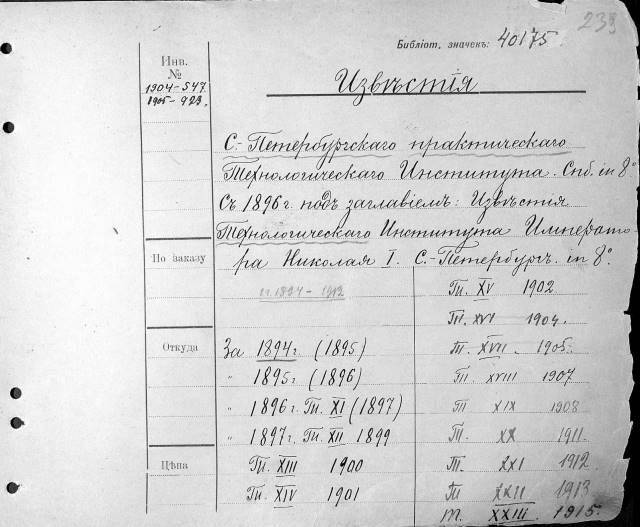 239
Библіот. значекъ: 40175.
Инв.
№
1904-547
1905-923.
Извѣстія
С.-Петербургскаго практическаго
Технологическаго Института. Спб. in 8°
Съ 1896 г. подъ заглавіемъ: Извѣстія
Технологическаго Института Императо-
ра Николая I. С.-Петербургъ. in 8°.
По заказу
гг. 1894-1912
Откуда
За 1894 г. (1895)
" 1895 г. (1896)
" 1896 г. Т. XI (1897)
" 1897 г. Т. XII 1899
Т. XIII 1900
Т. XIV 1901
Цѣна
Т. XV 1902
Т. XVI 1904.
Т. XVII. 1905.
Т. XVIII 1907
Т. XIX 1908
Т. XX 1911.
Т. XXI 1912
Т. XXII 1913
Т. XXIII. 1915.